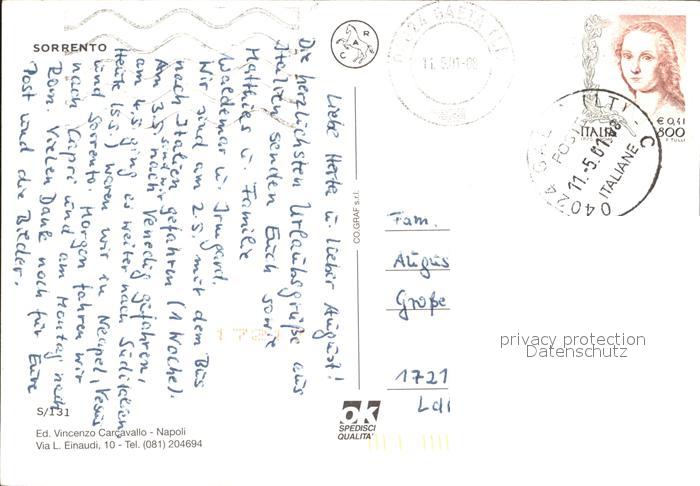 SORRENTO
Liebe Herta u. lieber August!
Die herzlichsten Urlaubsgrüße aus
Italien senden Euch sowie
Matthias u. Familie
Waldemar u. Irmgard.
Wir sind am 2.5. mit dem Bus
nach Italien gefahren (1 Woche).
Am 3.5. sind wir nach Venedig gefahren,
am 4.5. ging es weiter nach Süditalien
Heute (5.5.) waren wir in Neapel, Vesuv
und Sorrento. Morgen fahren wir
nach Capri und am Montag nach
Rom. Vielen Dank noch für Eure
Post und die Bilder.
S/131
Ed. Vincenzo Carcavallo - Napoli
Via L. Einaudi, 10 - Tel. (081) 204694
CO.GRAF s.r.l.
ok
SPEDISCI
QUALITA'
11.5.01-08
€ 0,41
ITALIA 800
04024
POSTE
11.-5.01
ITALIANE
Fam.
Augus
Große
1721
172
privacy protection
Datenschutz